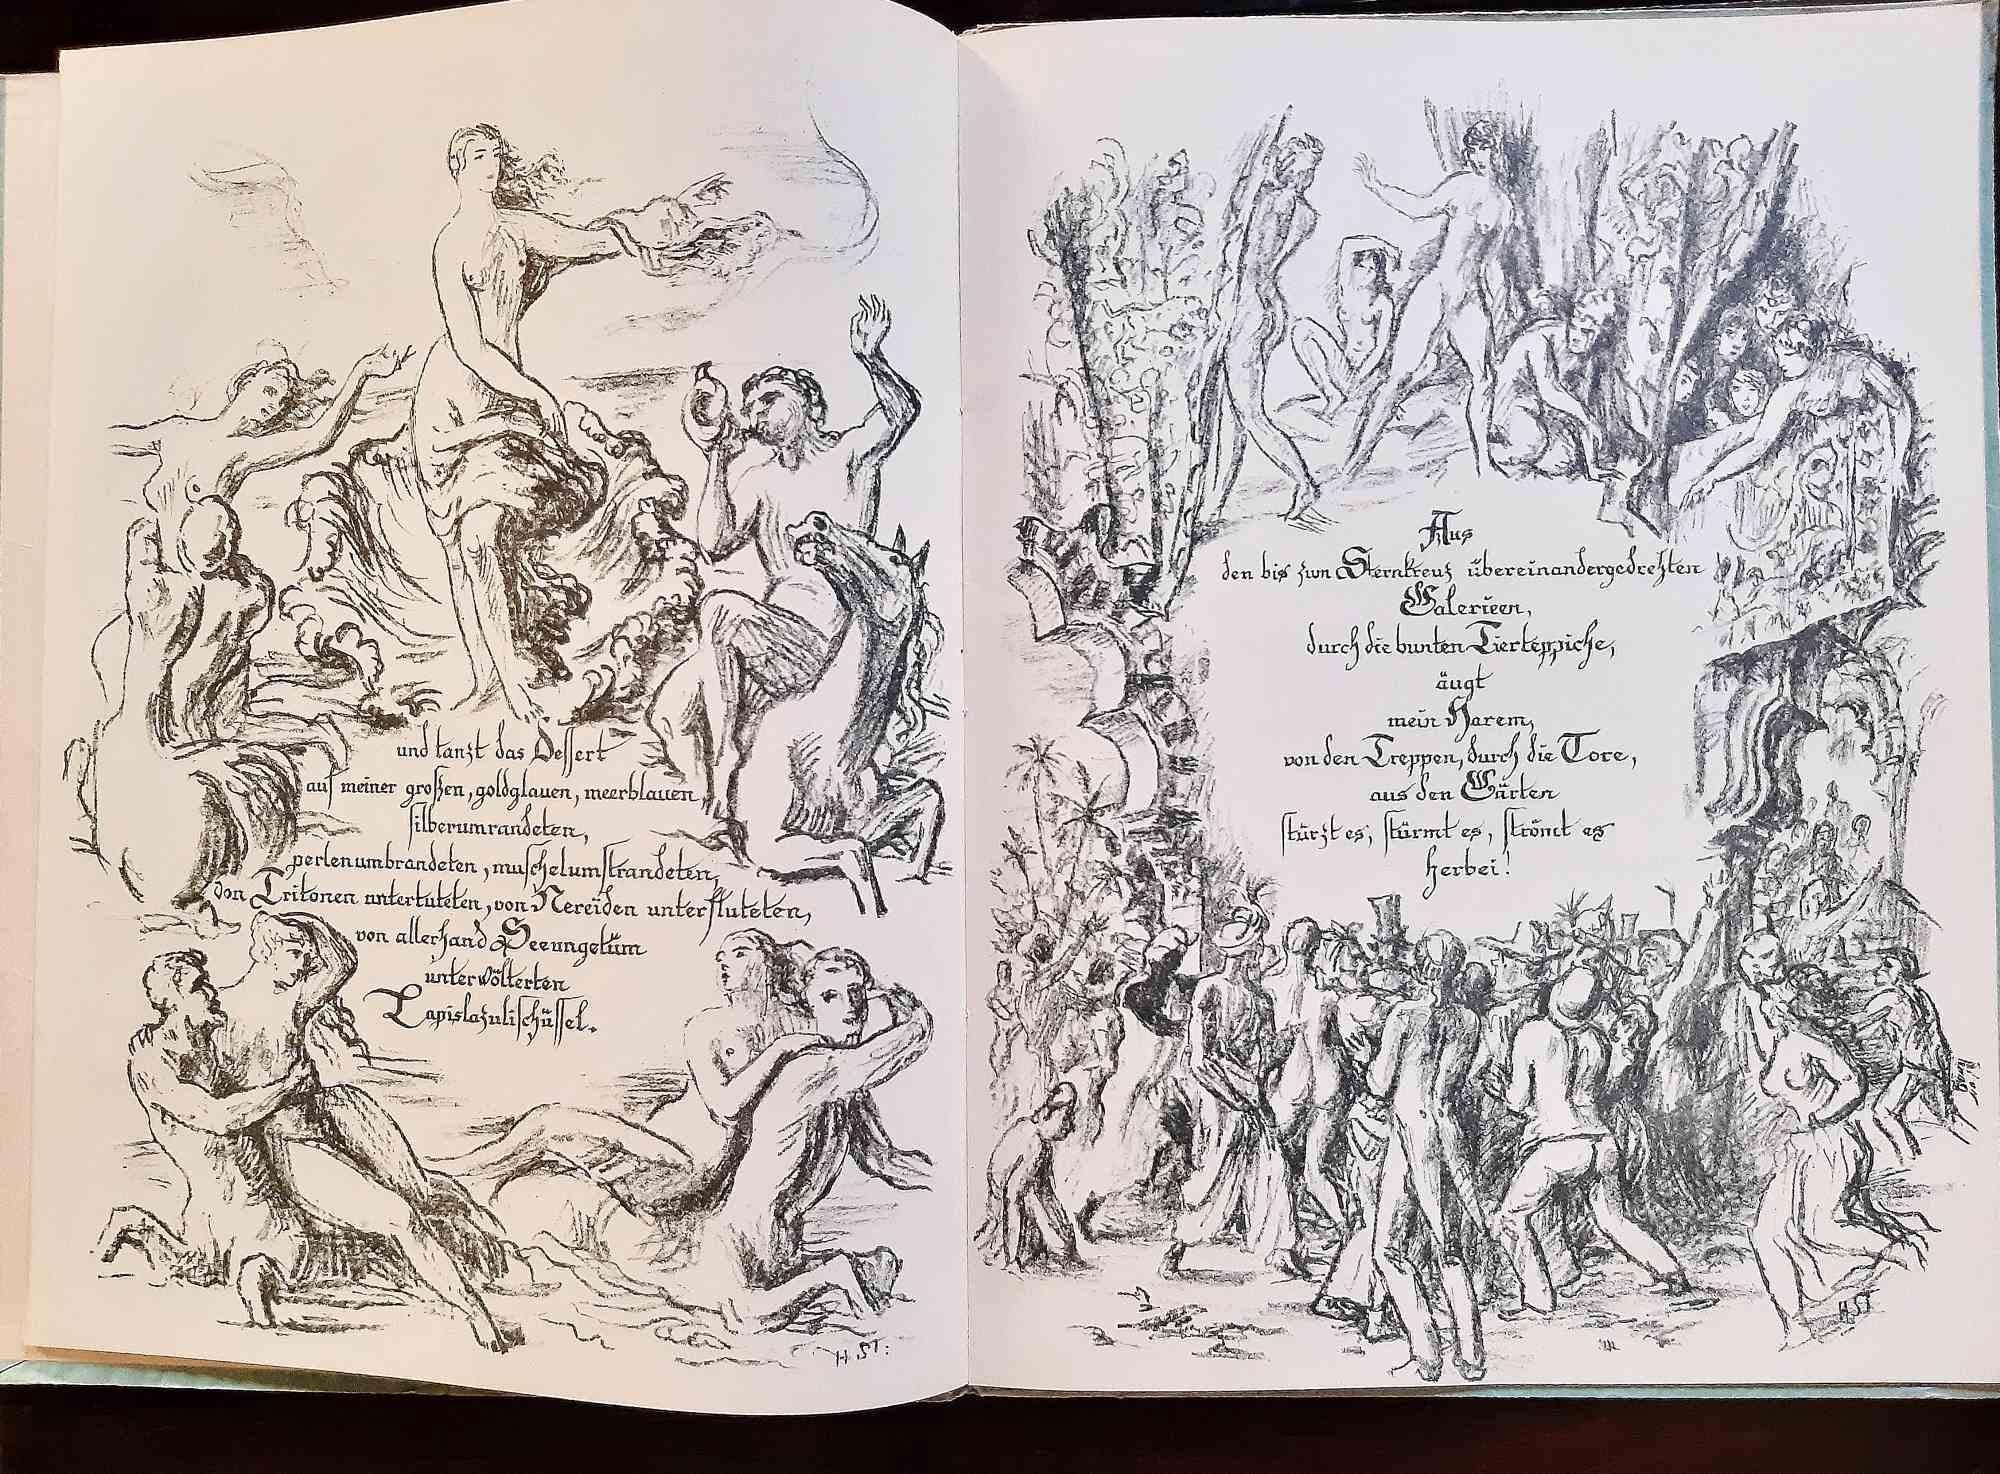 und tanzt das Dessert
auf meiner großen, goldglauen, meerblauen,
silberumrandeten,
perlenumbrandeten, muschelumstrandeten,
von Tritonen untertuteten, von Nereïden unterfluteten,
von allerhand Seeungetüm
unterwölterten
Lapislazulischüssel.
H ST:
Aus
den bis zum Sternkreuz übereinandergedrehten
Galerieen,
durch die bunten Tierteppiche,
äugt
mein Harem,
von den Treppen, durch die Tore,
aus den Gärten
stürzt es, stürmt es, strömt es
herbei!
HST